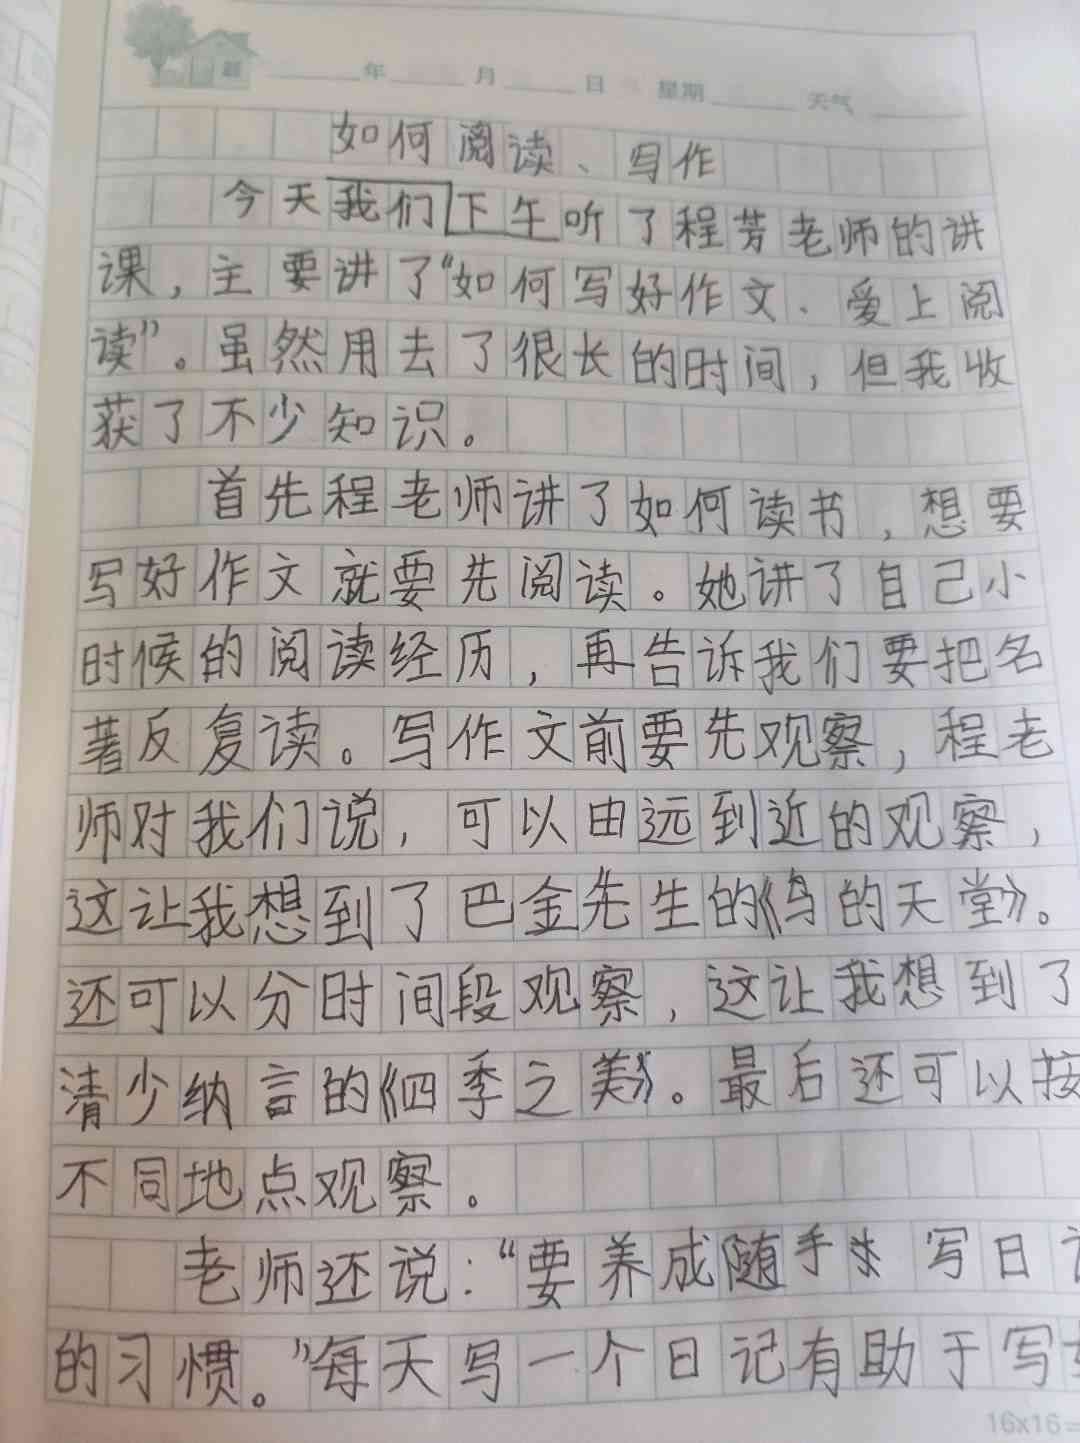 年 月 日 星期 天气
如何阅读、写作
今天我们下午听了程芳老师的讲
课，主要讲了“如何写好作文、爱上阅
读”。虽然用去了很长的时间，但我收
获了不少知识。
首先程老师讲了如何读书，想要
写好作文就要先阅读。她讲了自己小
时候的阅读经历，再告诉我们要把名
著反复读。写作文前要先观察，程老
师对我们说，可以由远到近的观察，
这让我想到了巴金先生的《鸟的天堂》。
还可以分时间段观察，这让我想到了
清少纳言的《四季之美》。最后还可以按
不同地点观察。
老师还说：“要养成随手 写日
的习惯。”每天写一个日记有助于写
16x16=